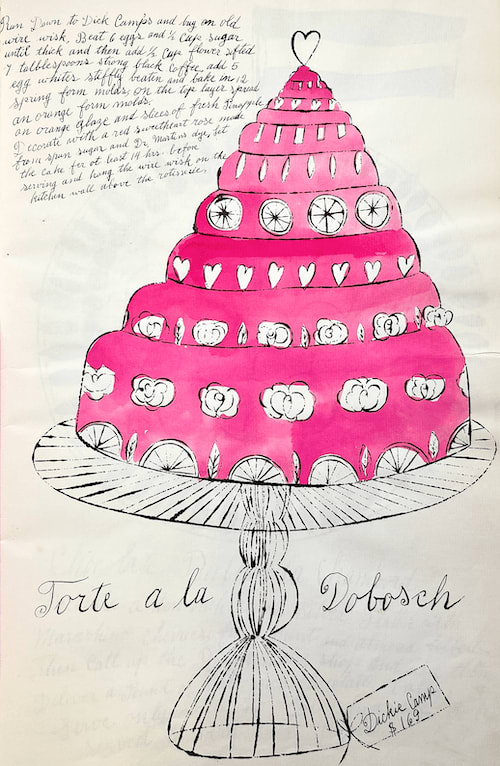 Run Down to Dick Camps and buy an old
wire wisk, Beat 6 eggs and ½ cup sugar
until thick and then add ½ cup flower sifted
7 tabblespoons strong black coffee, add 5
egg whites stiffly beaten and bake in 12
spring form molds, on the top layer spread
an orange form molds.
an orange glaze and slices of fresh Pineapple
Decorate with a red sweetheart rose made
from spun sugar and Dr. Martins dye, let
the cake fer at least 14 hrs. before
serving and hang the wire wisk on the
kitchen wall above the rotisserie.
Torte a la Dobosch
Dickie Camp
$ 169